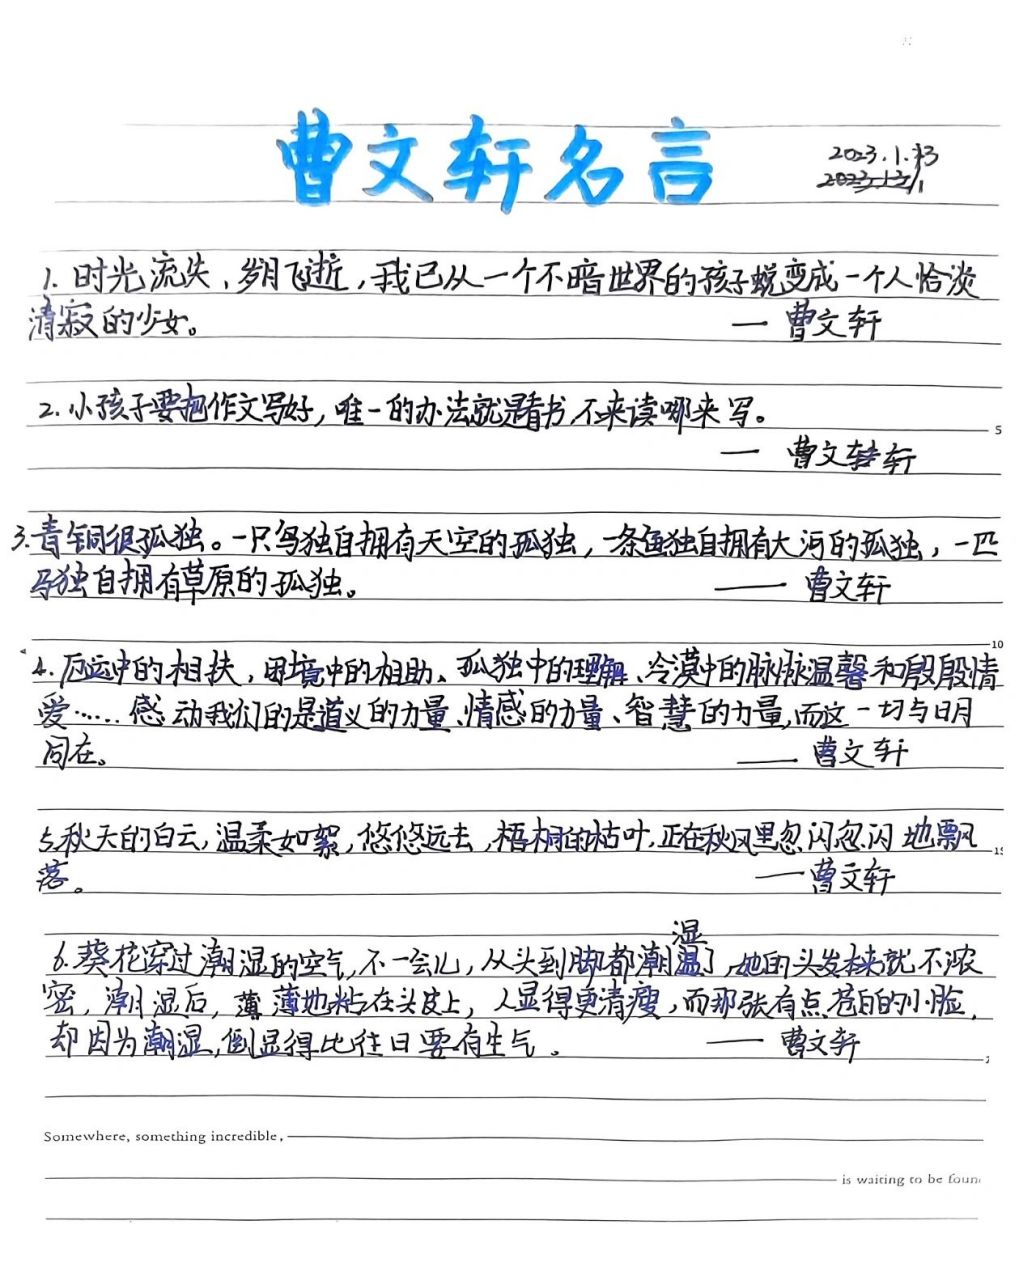 曹文轩名言
2023.1.13
1. 时光流失，岁月飞逝，我已从一个不暗世界的孩子蜕变成一个人恰淡
清寂的少女。 — 曹文轩
2. 小孩子要把作文写好，唯一的办法就是看书，不来读哪来写。
— 曹文轩
3. 青铜很孤独。一只鸟独自拥有天空的孤独，一条鱼独自拥有大河的孤独，一匹
马独自拥有草原的孤独。 —— 曹文轩
4. 厄运中的相扶，困境中的相助、孤独中的理解、冷漠中的脉脉温馨和殷殷情
爱……感动我们的是道义的力量、情感的力量、智慧的力量，而这一切与日月
同在。 —— 曹文轩
5. 秋天的白云，温柔如絮，悠悠远去，梧桐的枯叶，正在秋风里忽闪忽闪地飘
落。 — 曹文轩
湿
6. 葵花穿过潮湿的空气，不一会儿，从头到脚都潮了，她的头发本来就不浓
密，潮湿后，薄薄地粘在头皮上，人显得更清瘦，而那张有点苍白的小脸，
却因为潮湿，倒显得比往日要有生气。 —— 曹文轩
Somewhere, something incredible,
is waiting to be foun
5
10
15